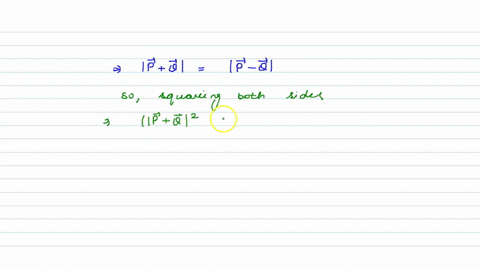 ⇒ |P⃗ + Q⃗| = |P⃗ − Q⃗|
so, squaring both sides
⇒ (|P⃗ + Q⃗|²